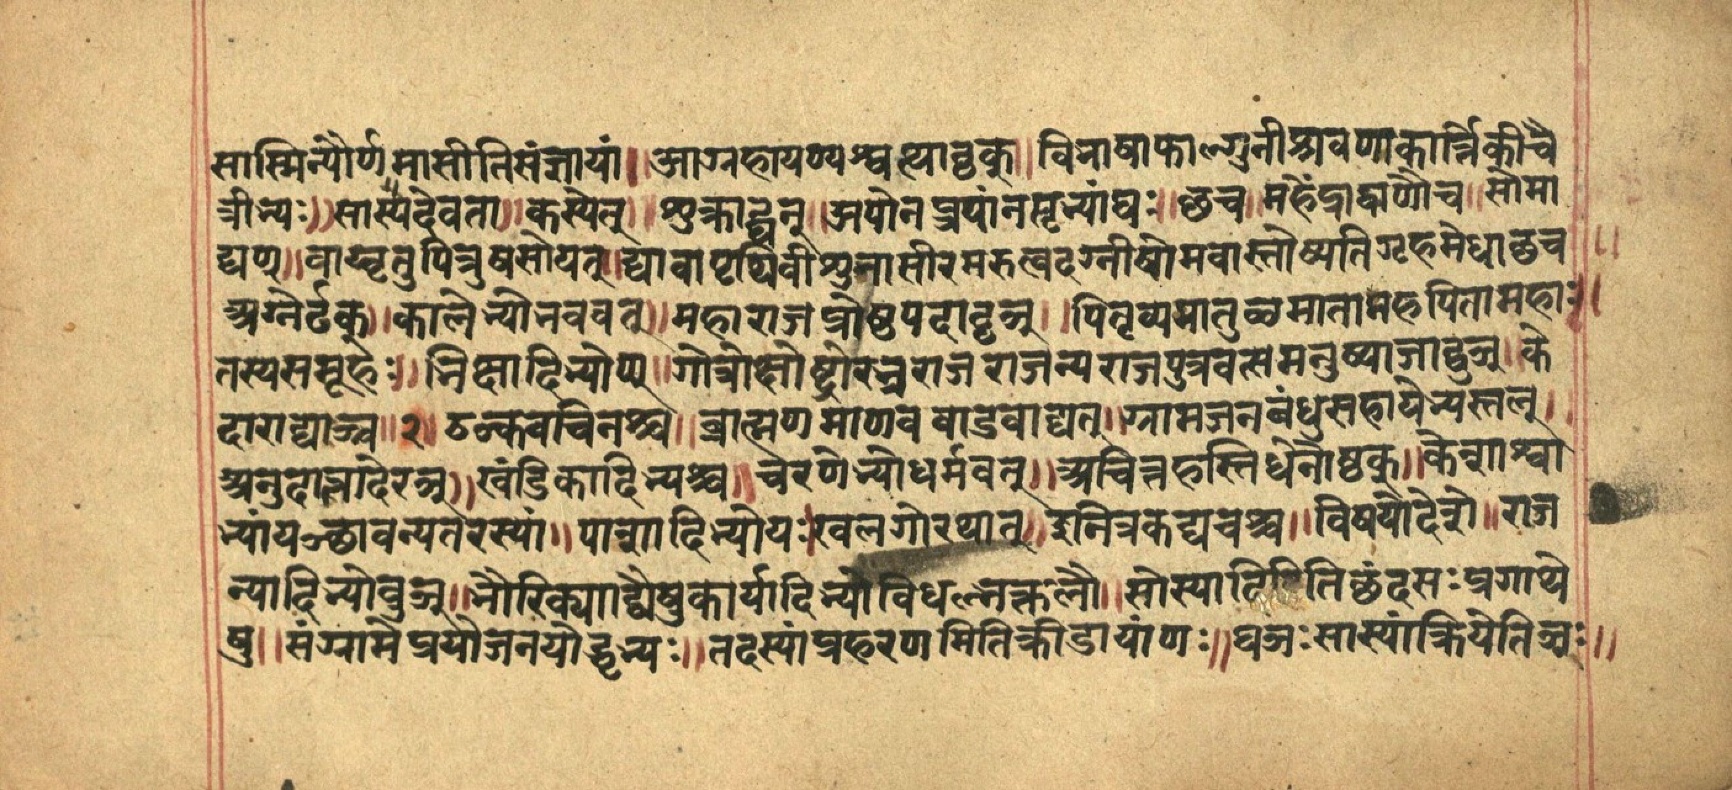 सास्मिन्पौर्णमासीतिसंज्ञायां॥आग्रहायण्यश्वत्थाट्ठक्॥विभाषाफाल्गुनीश्रवणाकार्त्तिकीचै
त्रीभ्यः॥सास्यदेवता॥कस्येत्॥शुक्राद्घन्॥अपोनप्त्रपांनप्तृभ्यांघः॥छच॥महेंद्राद्घाणौच॥सोमा
ट्यण्॥वाय्वृतुपित्रुषसोयत्॥द्यावापृथिवीशुनासीरमरुत्वदग्नीषोमवास्तोष्पतिगृहमेधाछच॥
अग्नेर्ढक्॥कालेभ्योभववत्॥महाराजप्रोष्ठपदाट्ठञ्॥पितृव्यमातुलमातामहपितामहाः॥
तस्यसमूहः॥भिक्षादिभ्योण्॥गोत्रोक्षोष्ट्रोरभ्रराजराजन्यराजपुत्रवत्समनुष्याजाद्वुञ्॥के
दाराद्यञ्च॥२॥ठञ्कवचिनश्च॥ब्राह्मणमाणववाडवाद्यत्॥ग्रामजनबंधुसहायेभ्यस्तल्॥
अनुदात्तादेरञ्॥खंडिकादिभ्यश्च॥चरणेभ्योधर्मवत्॥अचित्तहस्तिधेनोष्ठक्॥केशाश्वा
भ्यांयञ्छावन्यतरस्यां॥पाशादिभ्योयः॥खलगोरथात्॥इनित्रकट्यचश्च॥विषयोदेशे॥राज
न्यादिभ्योवुञ्॥भौरिक्याद्यैषुकार्यादिभ्योविधल्भक्तलौ॥सोस्यादिरितिछंदसःप्रगाथे
षु॥संग्रामेप्रयोजनयोद्धृभ्यः॥तदस्यांप्रहरणमितिक्रीडायांणः॥घञःसास्यांक्रियेतिञः॥